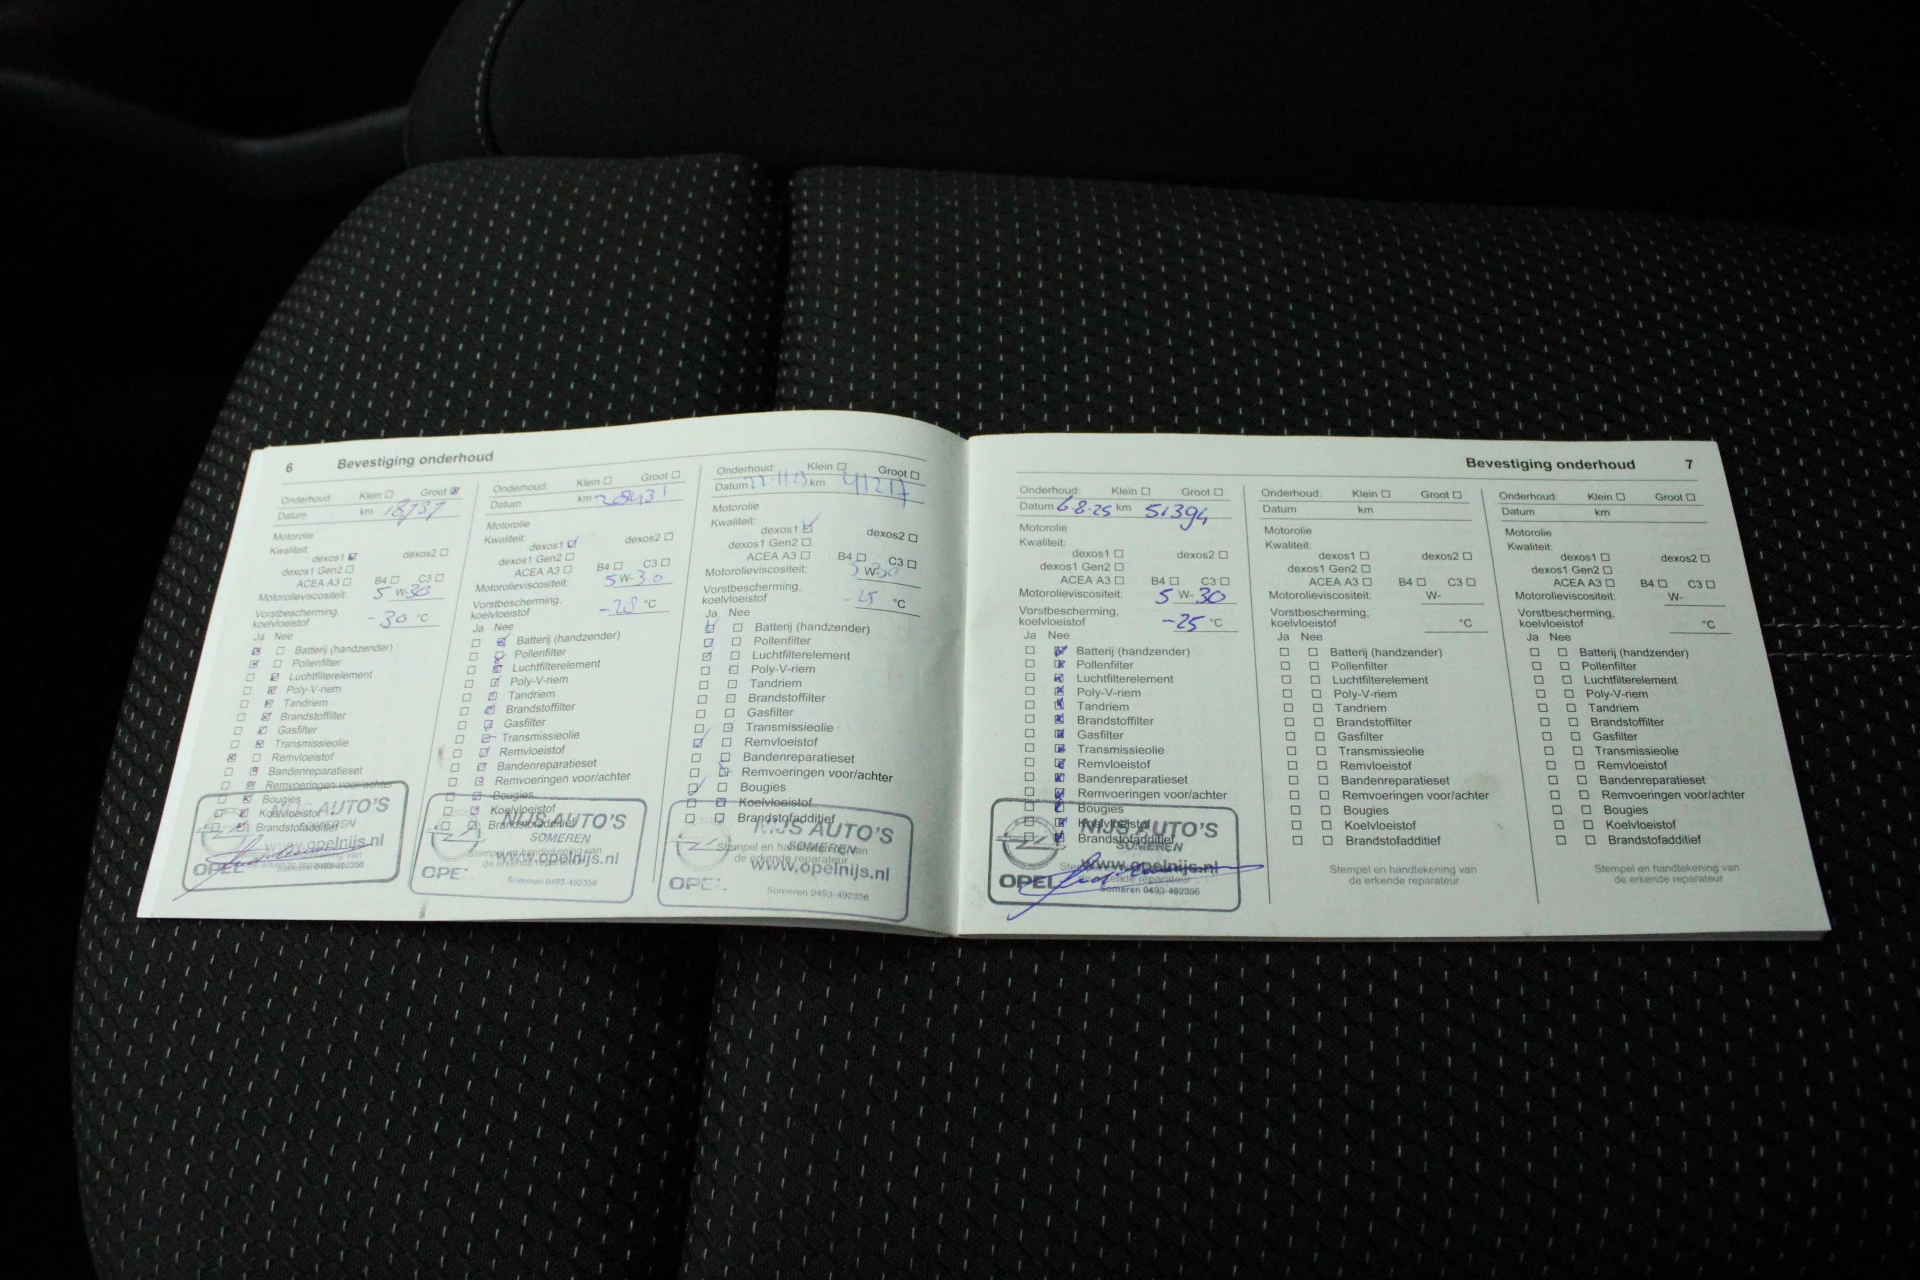 6 Bevestiging onderhoud
Onderhoud: Klein Groot
Datum km 18737
Motorolie
Kwaliteit:
dexos1 dexos2
dexos1 Gen2
ACEA A3 B4 C3
Motorolieviscositeit: 5 W-30
Vorstbescherming,
koelvloeistof -30 °C
Ja Nee
Batterij (handzender)
Pollenfilter
Luchtfilterelement
Poly-V-riem
Tandriem
Brandstoffilter
Gasfilter
Transmissieolie
Remvloeistof
Bandenreparatieset
Remvoeringen voor/achter
Bougies
Koelvloeistof
Brandstofadditief
NIJS AUTO'S
SOMEREN
www.opelnijs.nl
OPEL
Someren 0493-492356
Onderhoud: Klein Groot
Datum km 28431
Motorolie
Kwaliteit:
dexos1 dexos2
dexos1 Gen2
ACEA A3 B4 C3
Motorolieviscositeit: 5 W-30
Vorstbescherming,
koelvloeistof -28 °C
Ja Nee
Batterij (handzender)
Pollenfilter
Luchtfilterelement
Poly-V-riem
Tandriem
Brandstoffilter
Gasfilter
Transmissieolie
Remvloeistof
Bandenreparatieset
Remvoeringen voor/achter
Bougies
Koelvloeistof
Brandstofadditief
NIJS AUTO'S
SOMEREN
www.opelnijs.nl
Someren 0493-492356
Onderhoud: Klein Groot
Datum 22-11-23 km 41217
Motorolie
Kwaliteit:
dexos1 dexos2
dexos1 Gen2
ACEA A3 B4 C3
Motorolieviscositeit: 5 W-30
Vorstbescherming,
koelvloeistof -25 °C
Ja Nee
Batterij (handzender)
Pollenfilter
Luchtfilterelement
Poly-V-riem
Tandriem
Brandstoffilter
Gasfilter
Transmissieolie
Remvloeistof
Bandenreparatieset
Remvoeringen voor/achter
Bougies
Koelvloeistof
Brandstofadditief
NIJS AUTO'S
SOMEREN
Stempel en handtekening van
de erkende reparateur
www.opelnijs.nl
Someren 0493-492356
Bevestiging onderhoud 7
Onderhoud: Klein Groot
Datum 6-8-25 km 51394
Motorolie
Kwaliteit:
dexos1 dexos2
dexos1 Gen2
ACEA A3 B4 C3
Motorolieviscositeit: 5 W-30
Vorstbescherming,
koelvloeistof -25 °C
Ja Nee
Batterij (handzender)
Pollenfilter
Luchtfilterelement
Poly-V-riem
Tandriem
Brandstoffilter
Gasfilter
Transmissieolie
Remvloeistof
Bandenreparatieset
Remvoeringen voor/achter
Bougies
Koelvloeistof
Brandstofadditief
NIJS AUTO'S
SOMEREN
www.opelnijs.nl
OPEL
Someren 0493-492356
Onderhoud: Klein Groot
Datum km
Motorolie
Kwaliteit:
dexos1 dexos2
dexos1 Gen2
ACEA A3 B4 C3
Motorolieviscositeit: W-
Vorstbescherming,
koelvloeistof °C
Ja Nee
Batterij (handzender)
Pollenfilter
Luchtfilterelement
Poly-V-riem
Tandriem
Brandstoffilter
Gasfilter
Transmissieolie
Remvloeistof
Bandenreparatieset
Remvoeringen voor/achter
Bougies
Koelvloeistof
Brandstofadditief
Stempel en handtekening van
de erkende reparateur
Onderhoud: Klein Groot
Datum km
Motorolie
Kwaliteit:
dexos1 dexos2
dexos1 Gen2
ACEA A3 B4 C3
Motorolieviscositeit: W-
Vorstbescherming,
koelvloeistof °C
Ja Nee
Batterij (handzender)
Pollenfilter
Luchtfilterelement
Poly-V-riem
Tandriem
Brandstoffilter
Gasfilter
Transmissieolie
Remvloeistof
Bandenreparatieset
Remvoeringen voor/achter
Bougies
Koelvloeistof
Brandstofadditief
Stempel en handtekening van
de erkende reparateur